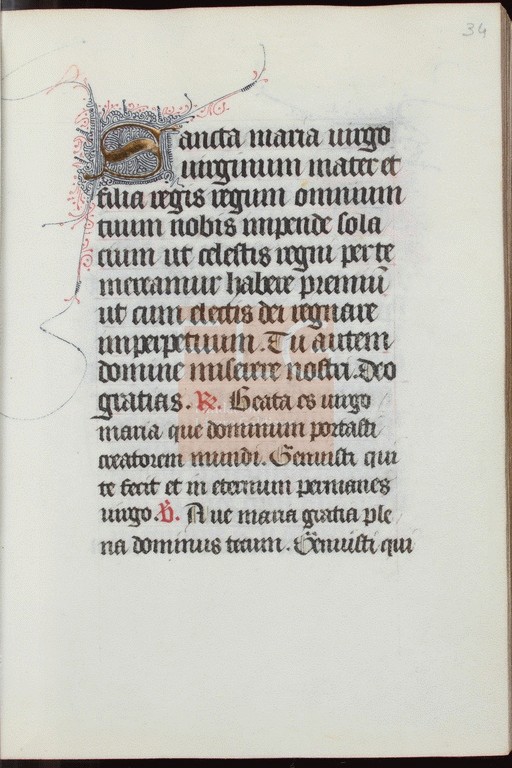 34
Sancta maria uirgo
uirginum mater et
filia regis regum omnium
tuum nobis impende sola
cium ut celestis regni per te
mereamur habere premiū
ut cum electis dei regnare
imperpetuum. Tu autem
domine miserere nostri. Deo
gratias. R. Beata es uirgo
maria que dominum portasti
creatorem mundi. Genuisti qui
te fecit et in eternum permanes
uirgo. V. Aue maria gratia ple
na dominus tecum. Genuisti qui